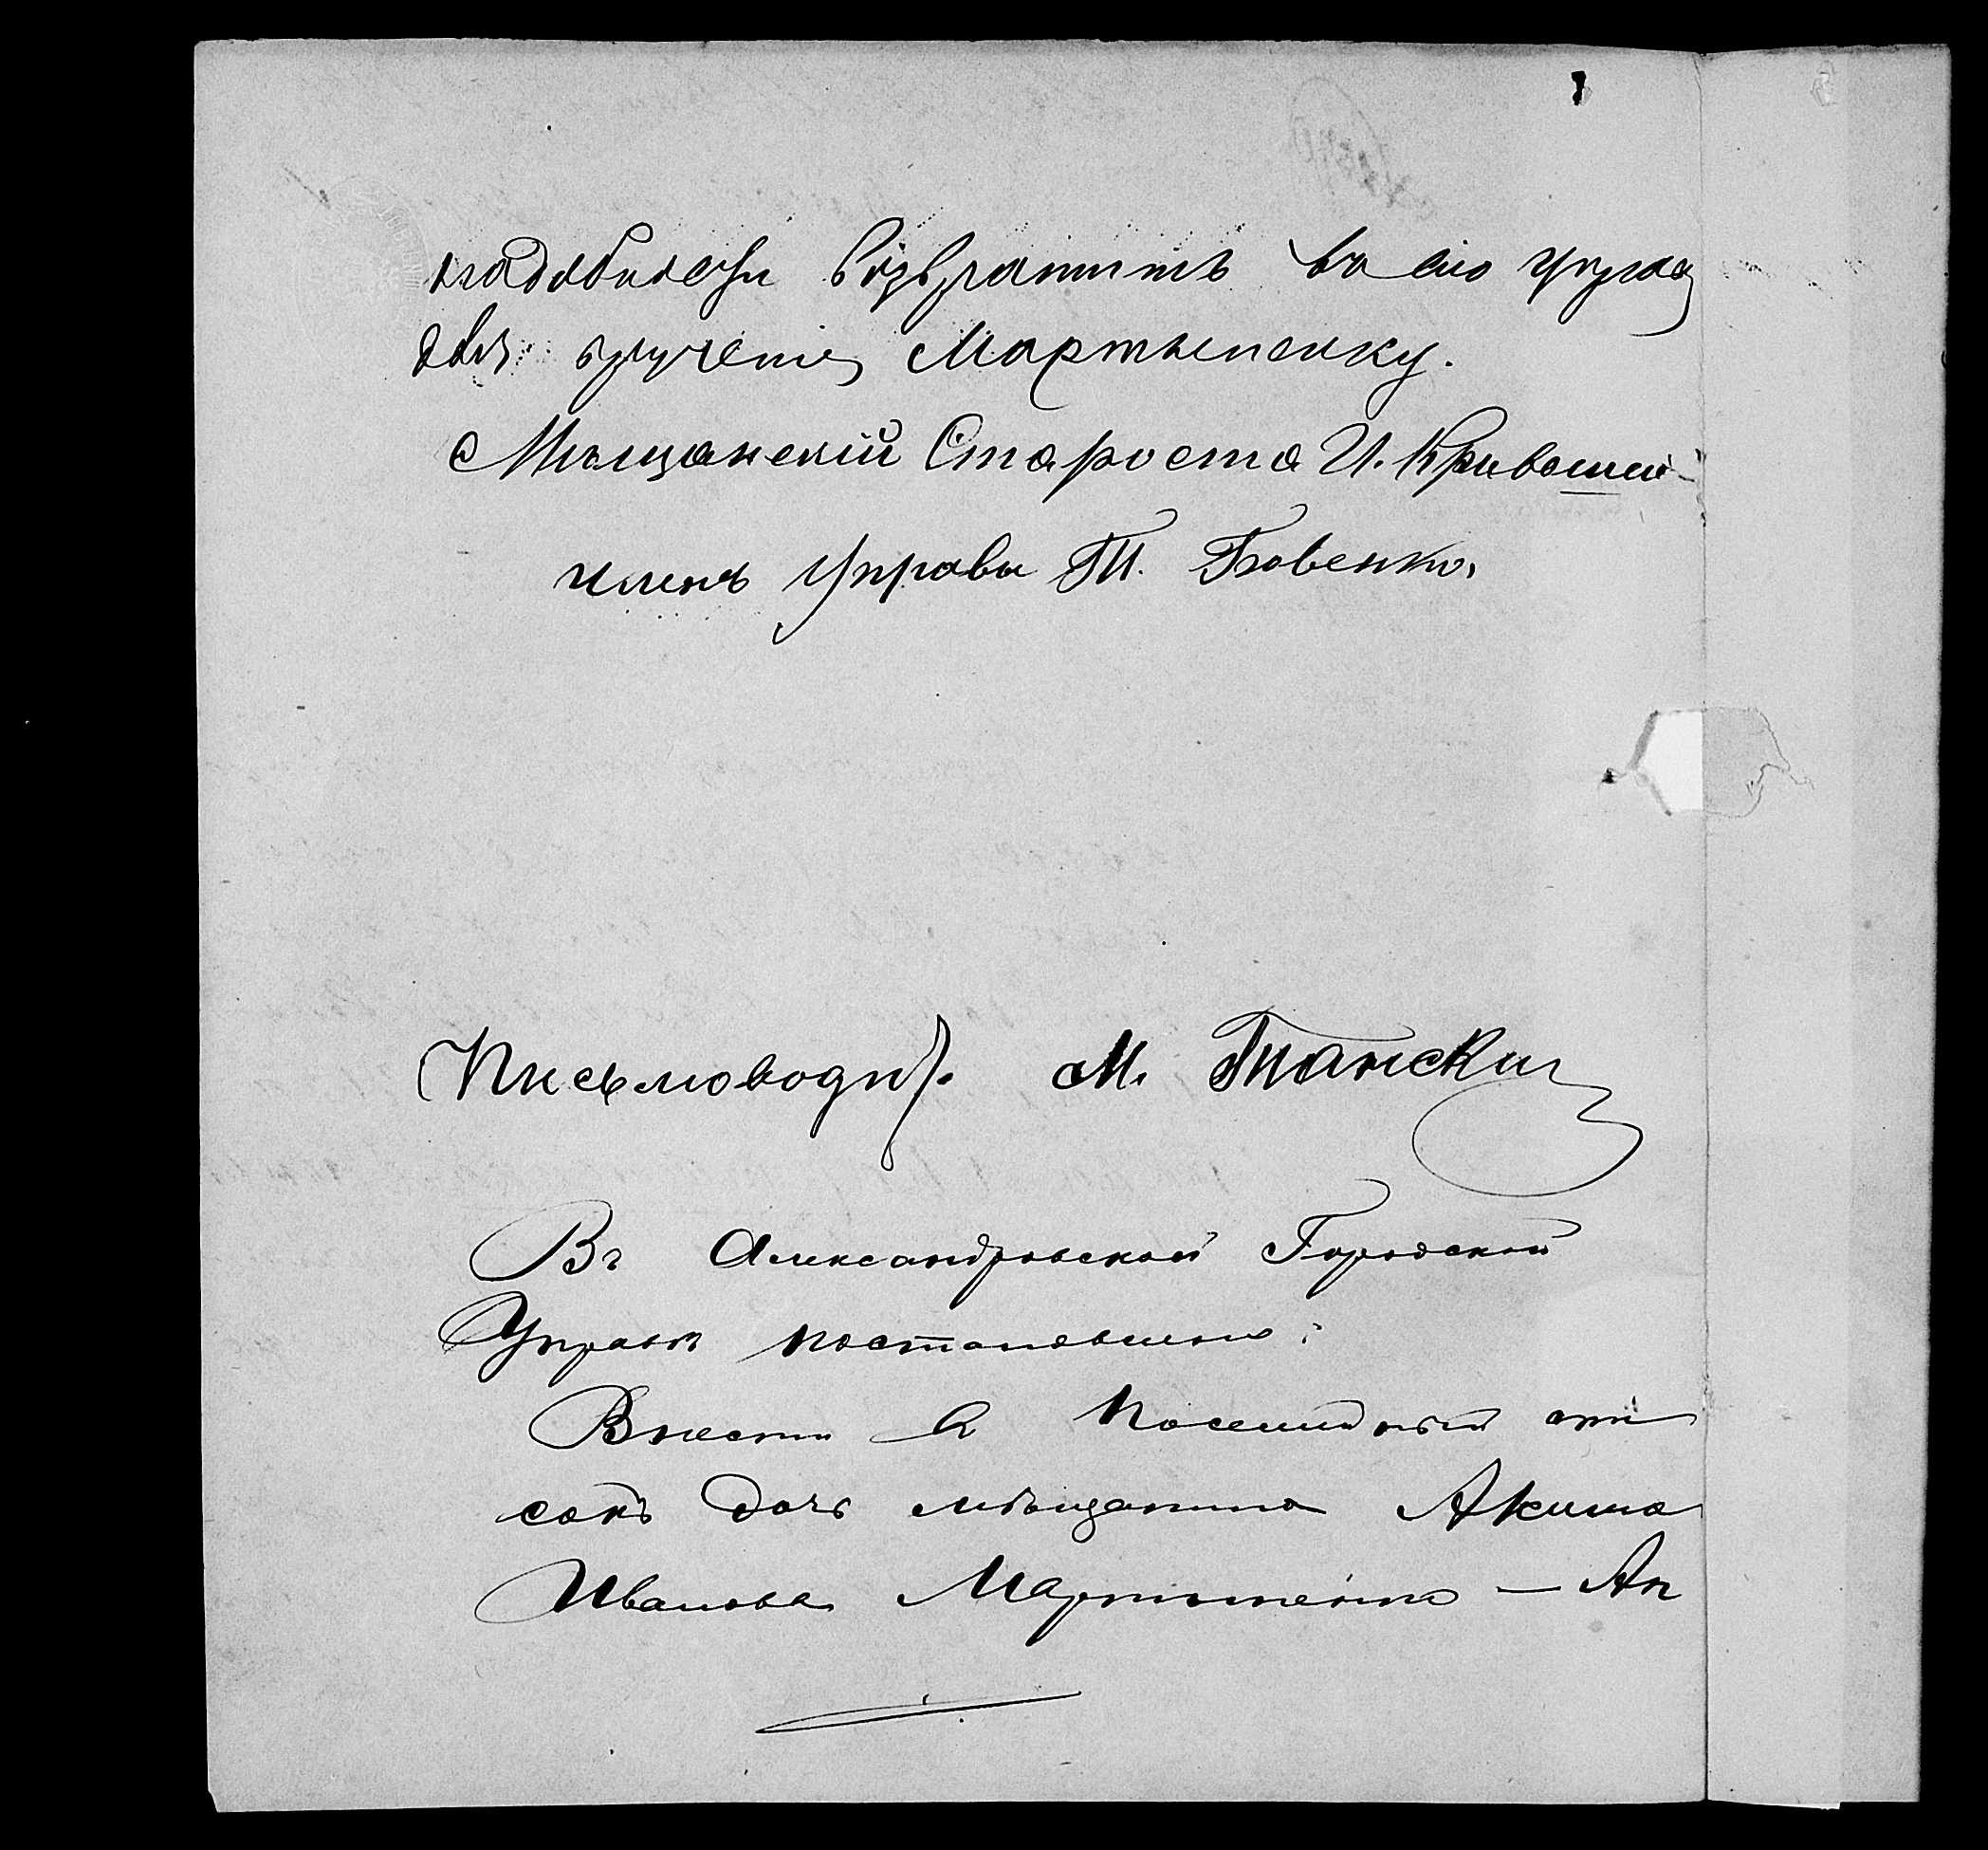 надобности возвратить въ сію Управу
для врученія Мартыненку.
Мѣщанскій Староста И. Кривошей
Членъ Управы Т. Бовенко.
Письмоводит. М. Танскій
Въ Александровской Городской
Управѣ постановлено:
Внести въ посемейный спи
сокъ дочь мѣщанина Акима
Иванова Мартыненко — Ан